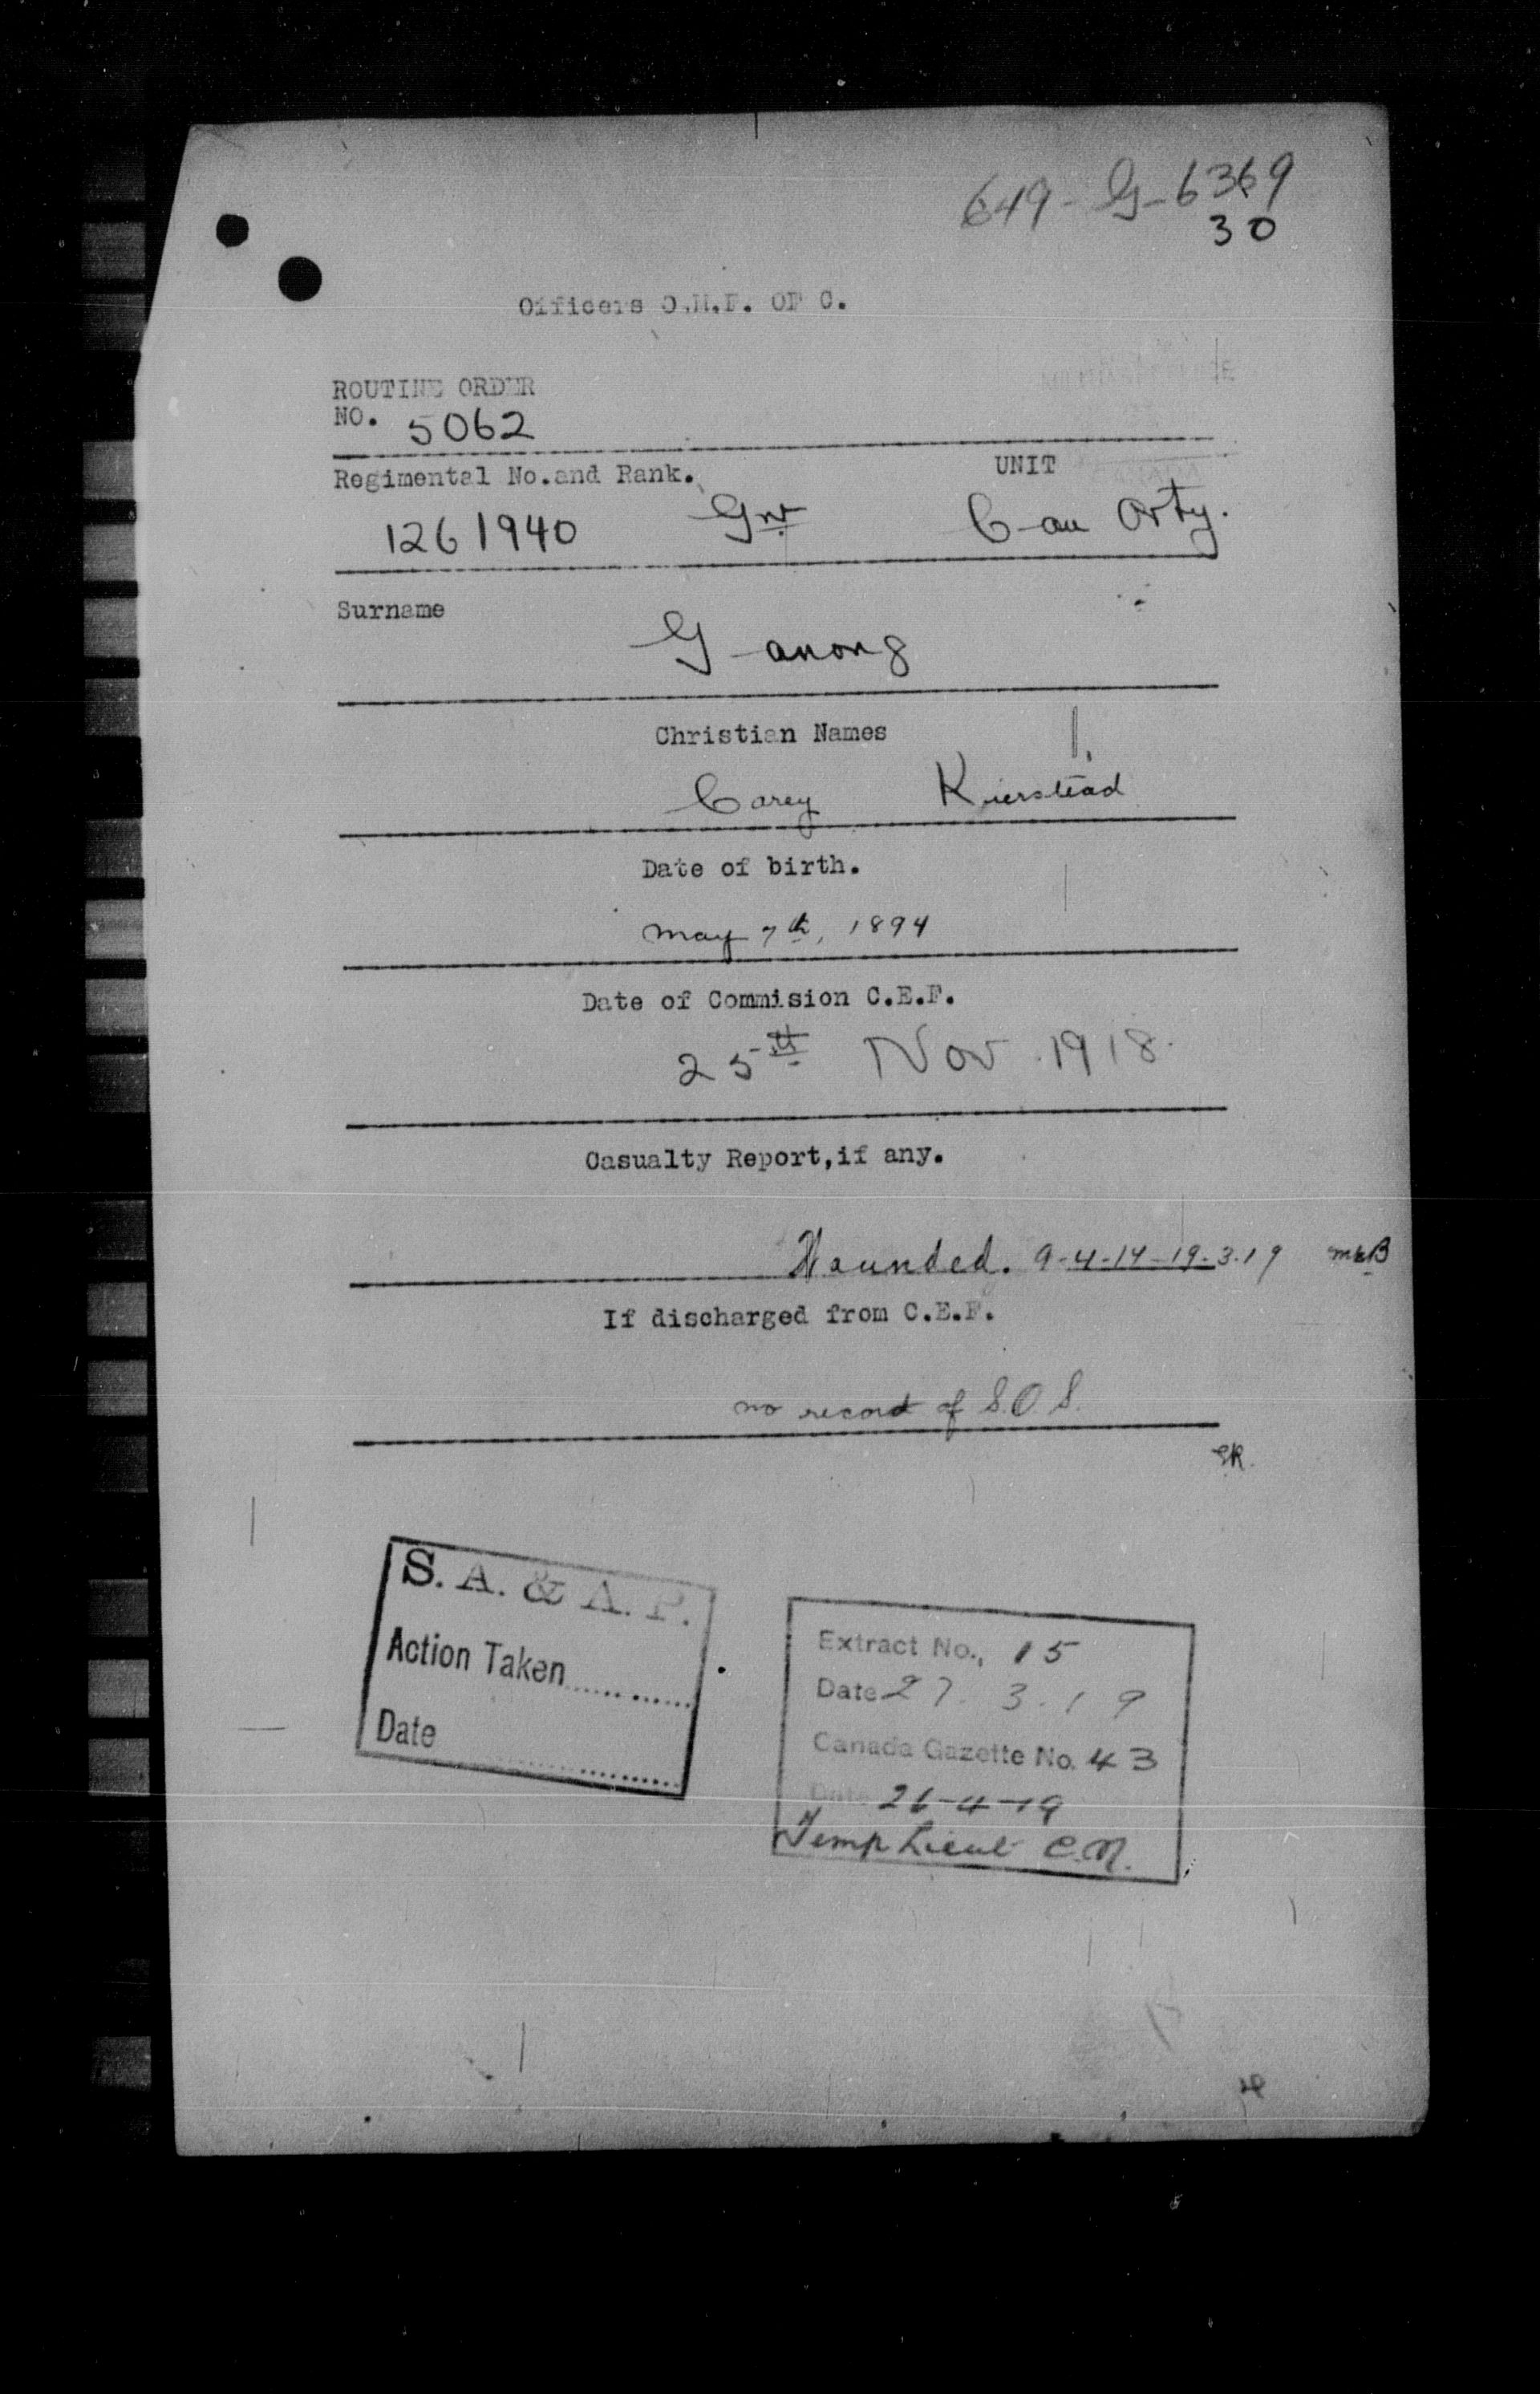 649-G-6369
30
Officers O.M.F. OF C.
ROUTINE ORDER
NO. 5062
Regimental No.and Rank. UNIT
1261940 Gnr Can Arty.
Surname
Ganong
Christian Names
Carey Kierstead
Date of birth.
May 7th, 1894
Date of Commision C.E.F.
25th Nov. 1918.
Casualty Report,if any.
Wounded. 9-4-17-19-3-19 McB
If discharged from C.E.F.
no record of S.O.S.
S. A. & A. P.
Action Taken
Date
Extract No., 15
Date 27.3.19
Canada Gazette No. 43
Date 26-4-19
Temp Lieut C.M.